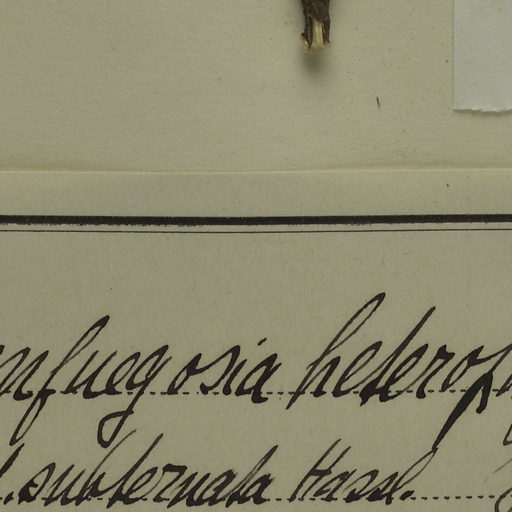 nfuegosia heterop
. subternata Hassl.